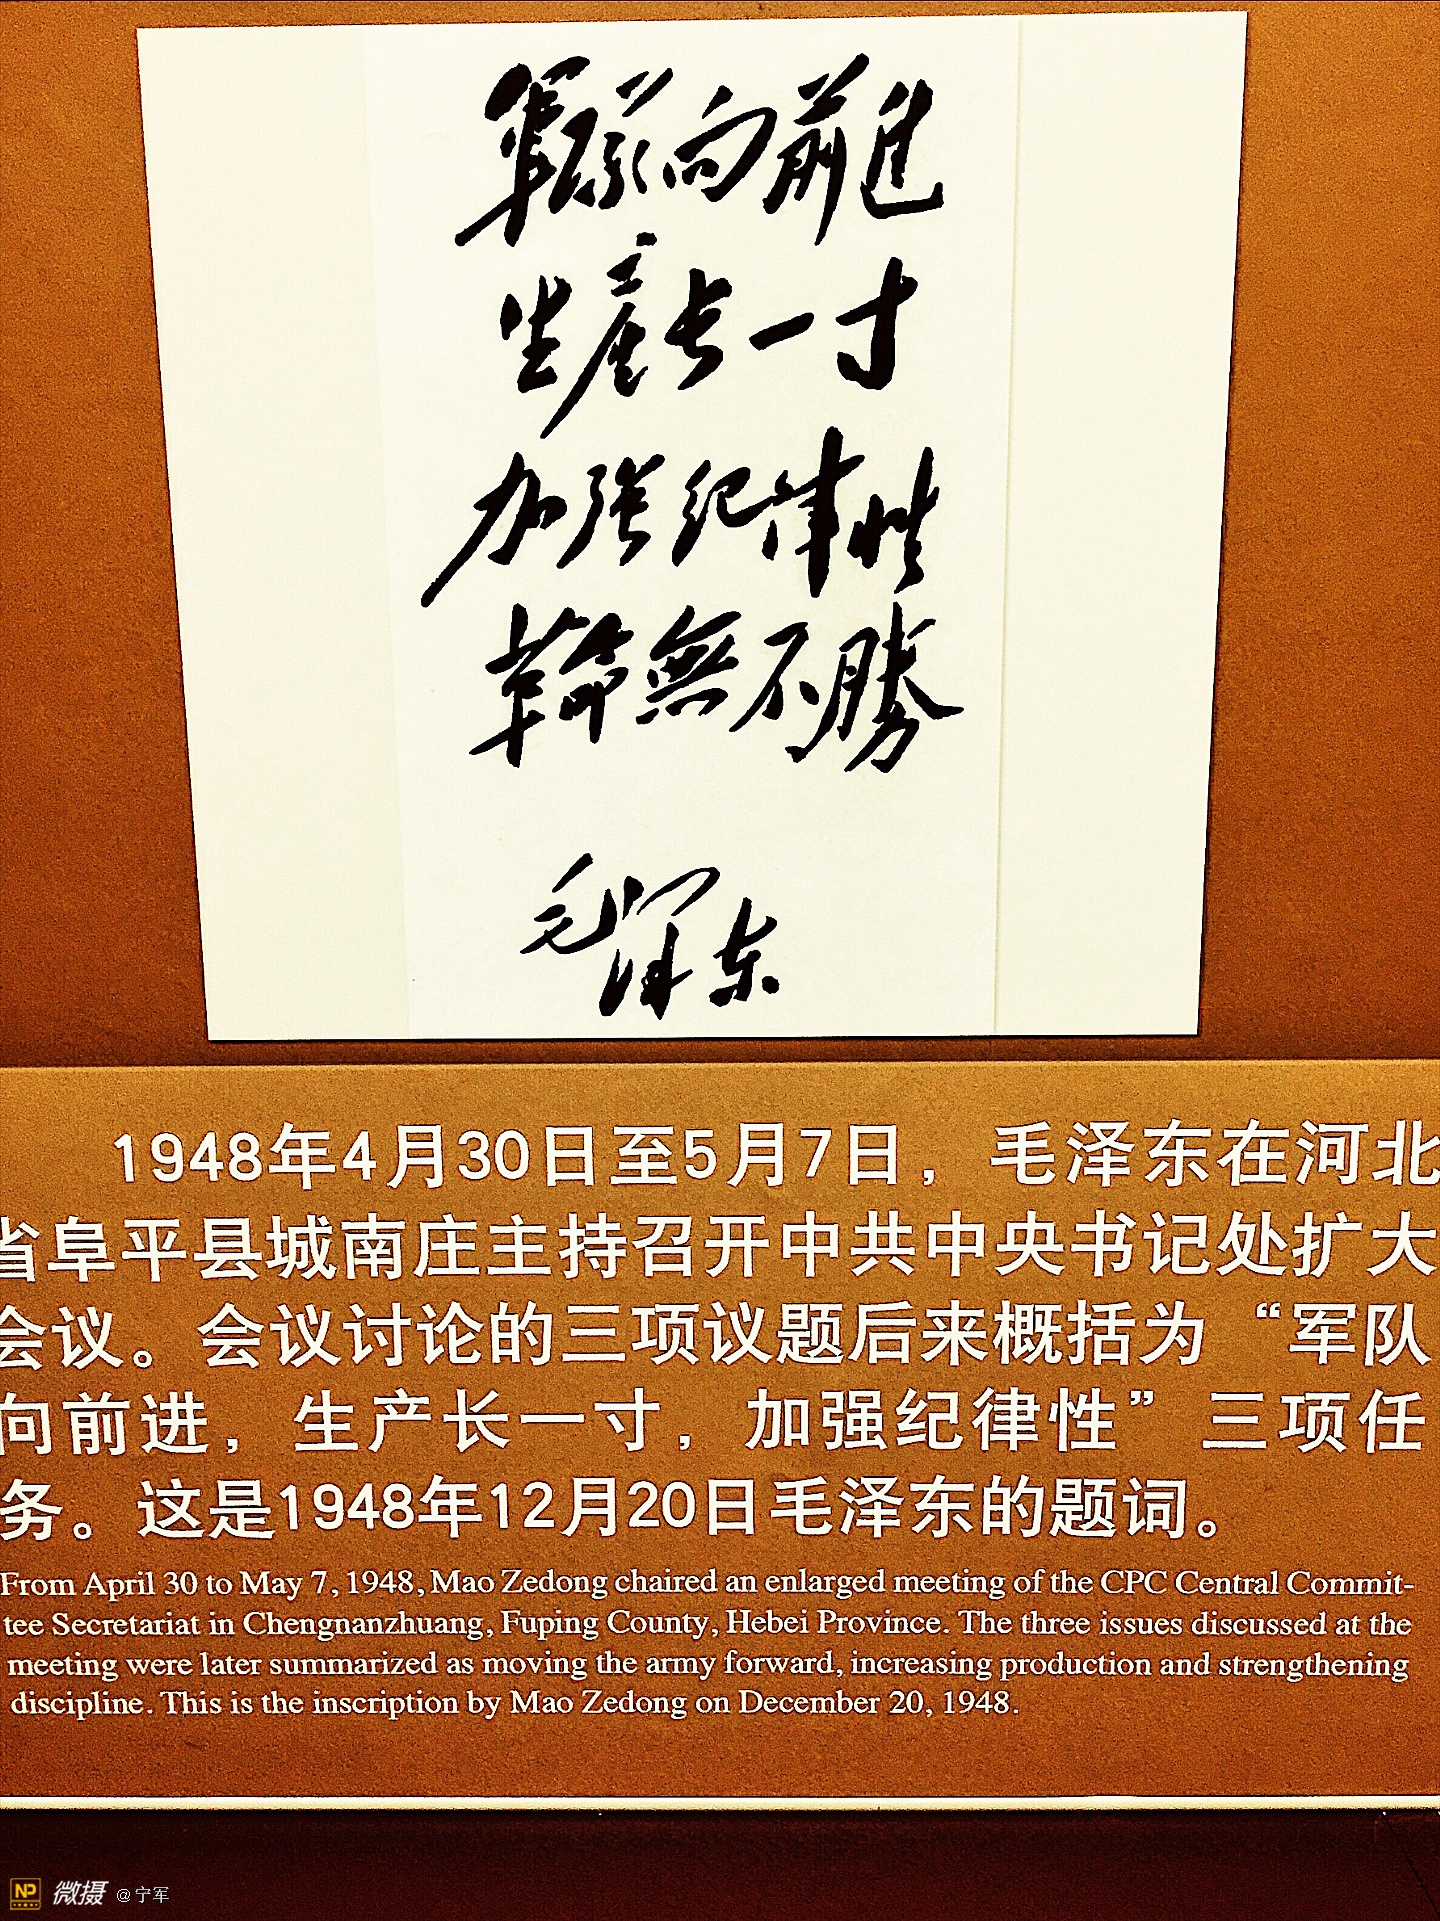 軍隊向前進
生產长一寸
加强纪律性
革命無不勝
毛泽东
1948年4月30日至5月7日，毛泽东在河北
省阜平县城南庄主持召开中共中央书记处扩大
会议。会议讨论的三项议题后来概括为“军队
向前进，生产长一寸，加强纪律性”三项任
务。这是1948年12月20日毛泽东的题词。
From April 30 to May 7, 1948, Mao Zedong chaired an enlarged meeting of the CPC Central Commit-
tee Secretariat in Chengnanzhuang, Fuping County, Hebei Province. The three issues discussed at the
meeting were later summarized as moving the army forward, increasing production and strengthening
discipline. This is the inscription by Mao Zedong on December 20, 1948.
NP 微摄 @宁军